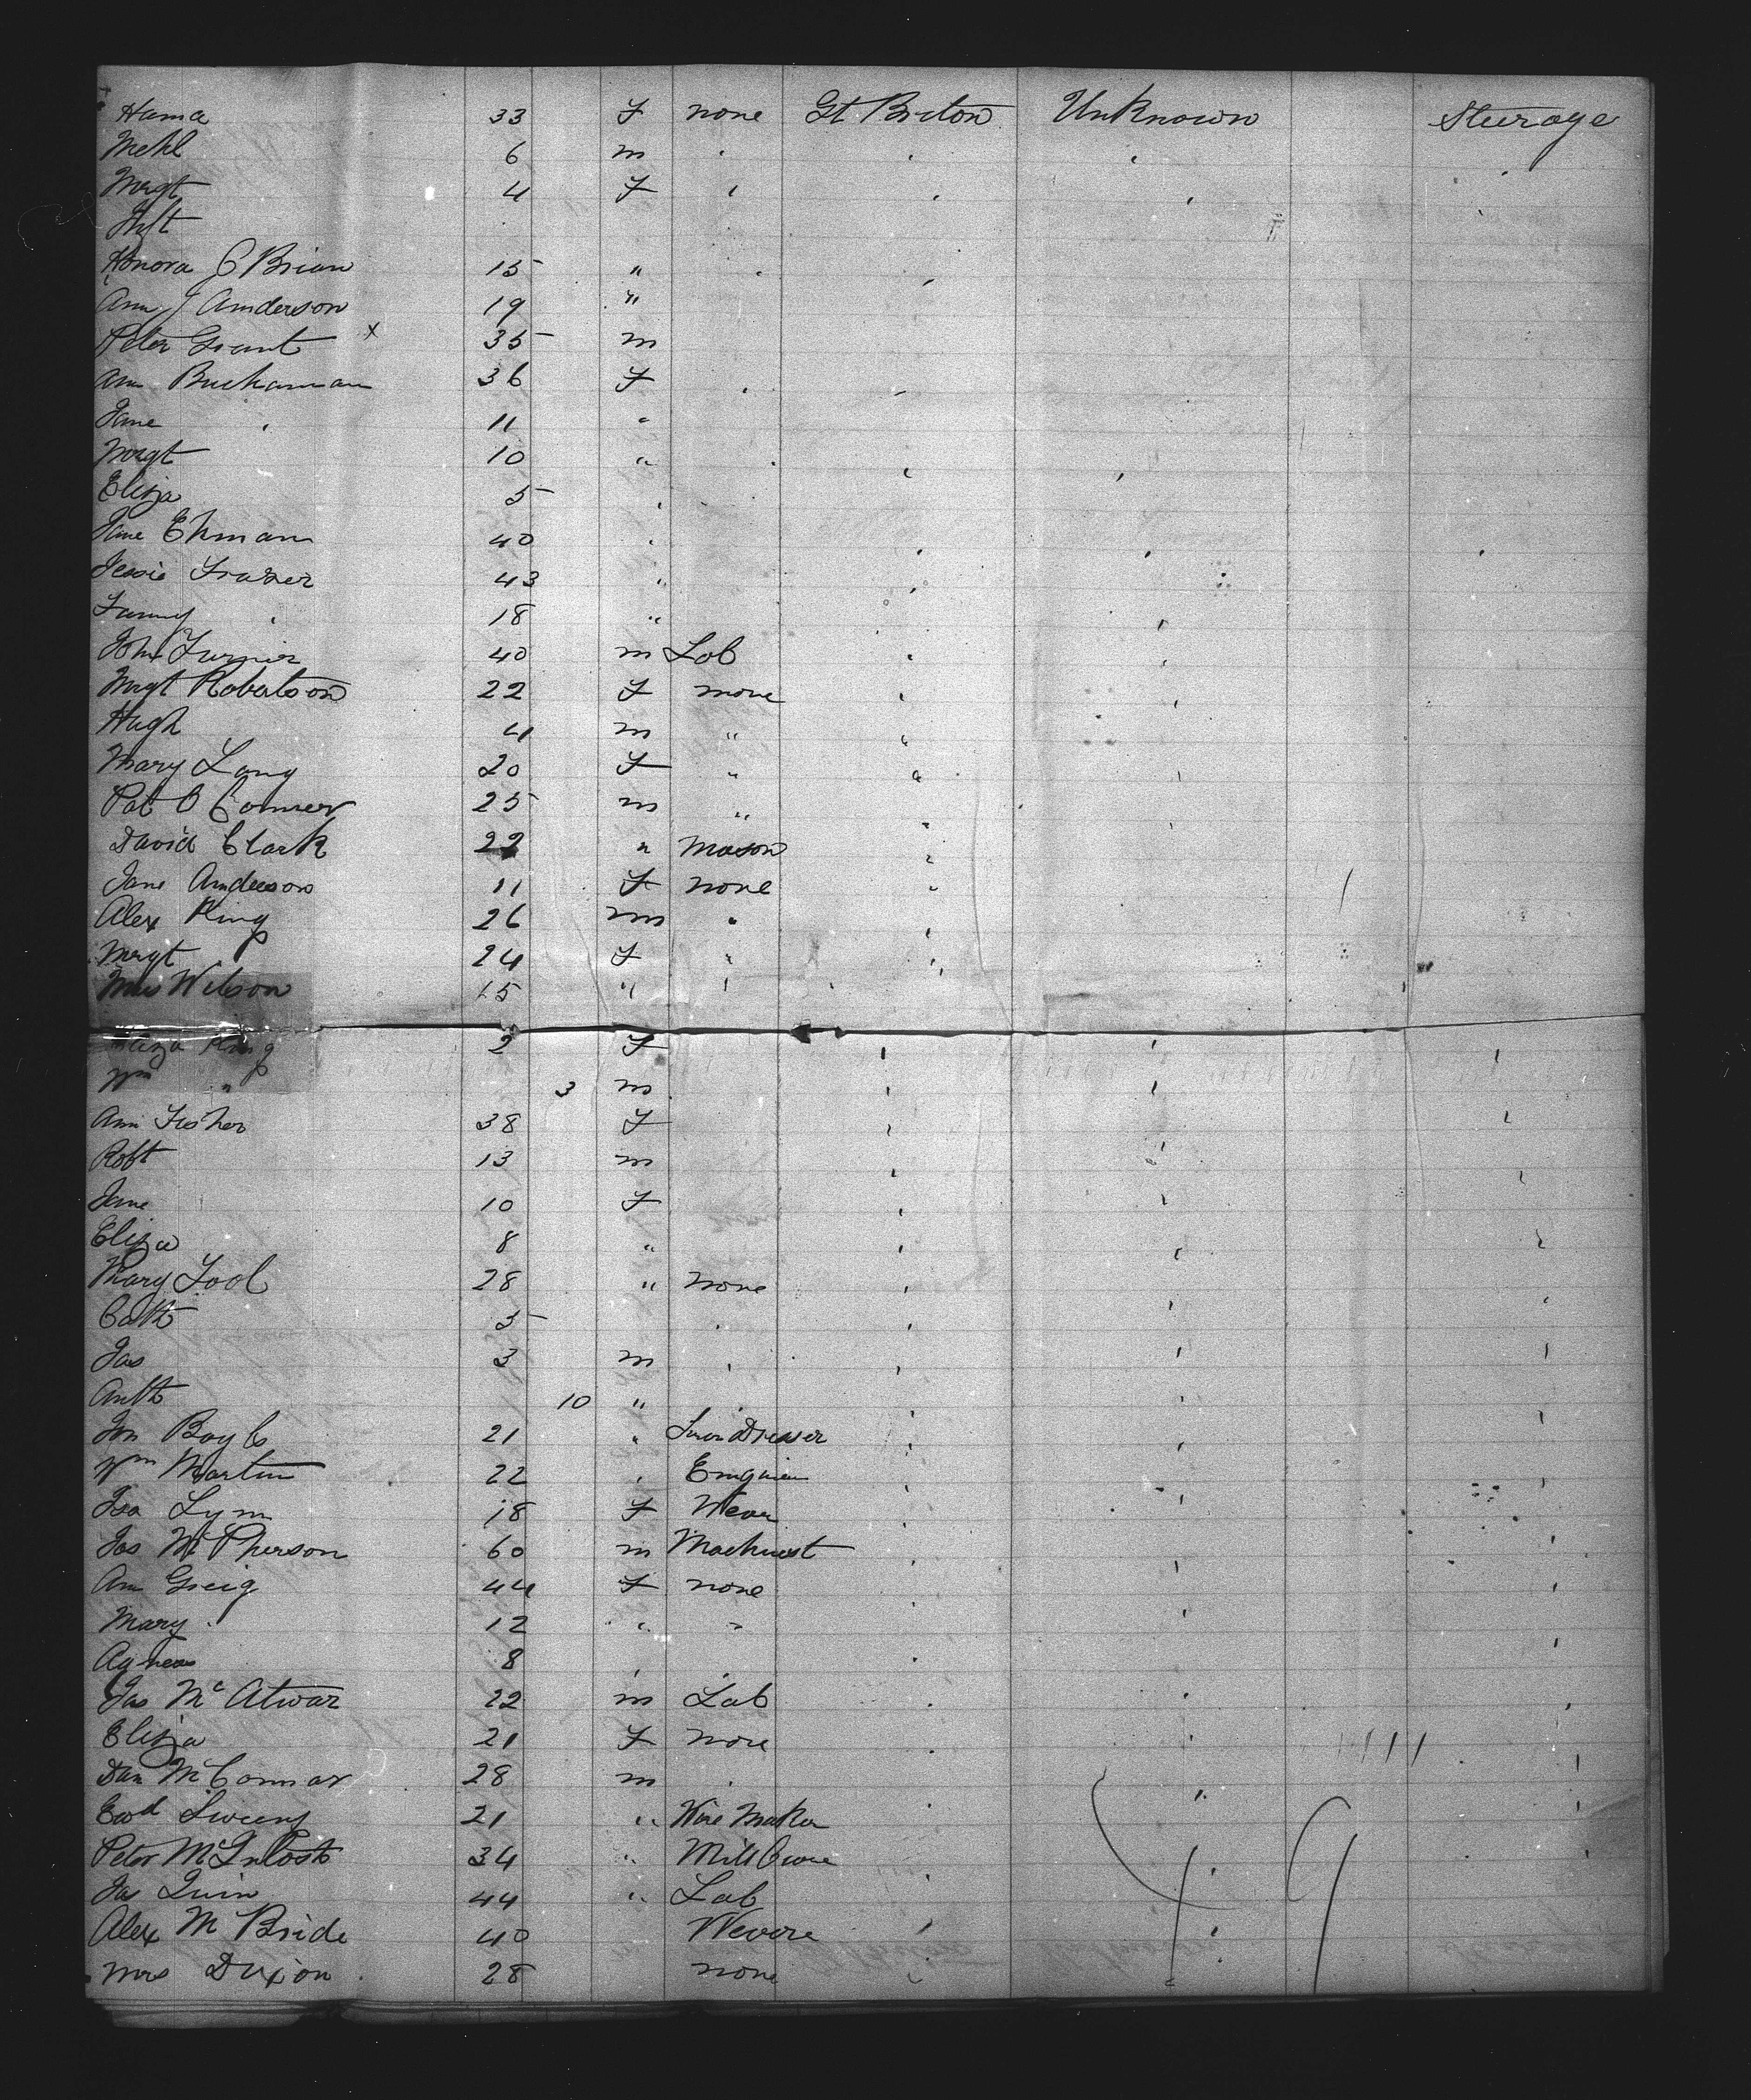 Hama 33 F none Gt Briton Unknown Steerage
Mchl 6 m
Mrgt 4 F
Inft
Honora O Brian 15 "
Ann J Anderson 19 "
Peter Grant x 35 m
Ann Buchannan 36 F
Jane 11 "
Mrgt 10 "
Eliza 5
Jane Ehman 40
Jessie Frazier 43 "
Fanny 18 "
John Turner 40 m Lab
Mrgt Robertson 22 F none
Hugh 4 m "
Mary Lang 20 F "
Pat O Conner 25 m "
David Clark 22 " Mason
Jane Anderson 11 F none
Alex King 26 m "
Mrgt 24 F "
Wilson 15 "
King 2 F
Wm " 3 m
Ann Fisher 38 F
Robt 13 m
Jane 10 F
Eliza 8 "
Mary Tool 28 " none
Cath 5
Jas 3 m
Anth 10 "
Jn Boyle 21 " Dresser
Wm Martin 22 Engineer
Isa Lynn 18 F Wever
Jas McPherson 60 m Machinest
Ann Greig 44 F none
Mary 12 " "
Agness 8
Jas Mc Atwar 22 m Lab
Eliza 21 F none
Dan McConnar 28 m
Ewd Sweeny 21 " Wire Maker
Peter McIntosh 34 " Mill
Jas Quin 44 " Lab
Alex Mc Bride 40 Wevore
Mrs Dixon 28 none
49